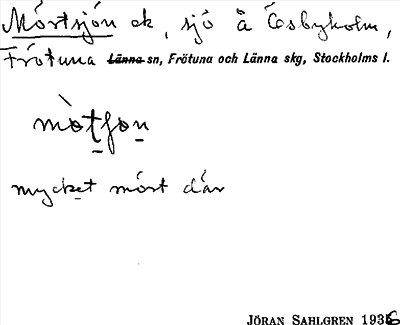 Mörtsjön ek, sjö å Åsbyholm,
Frötuna Länna sn, Frötuna och Länna skg, Stockholms l.
mòtʃon
mycket mört där
JÖRAN SAHLGREN 1936